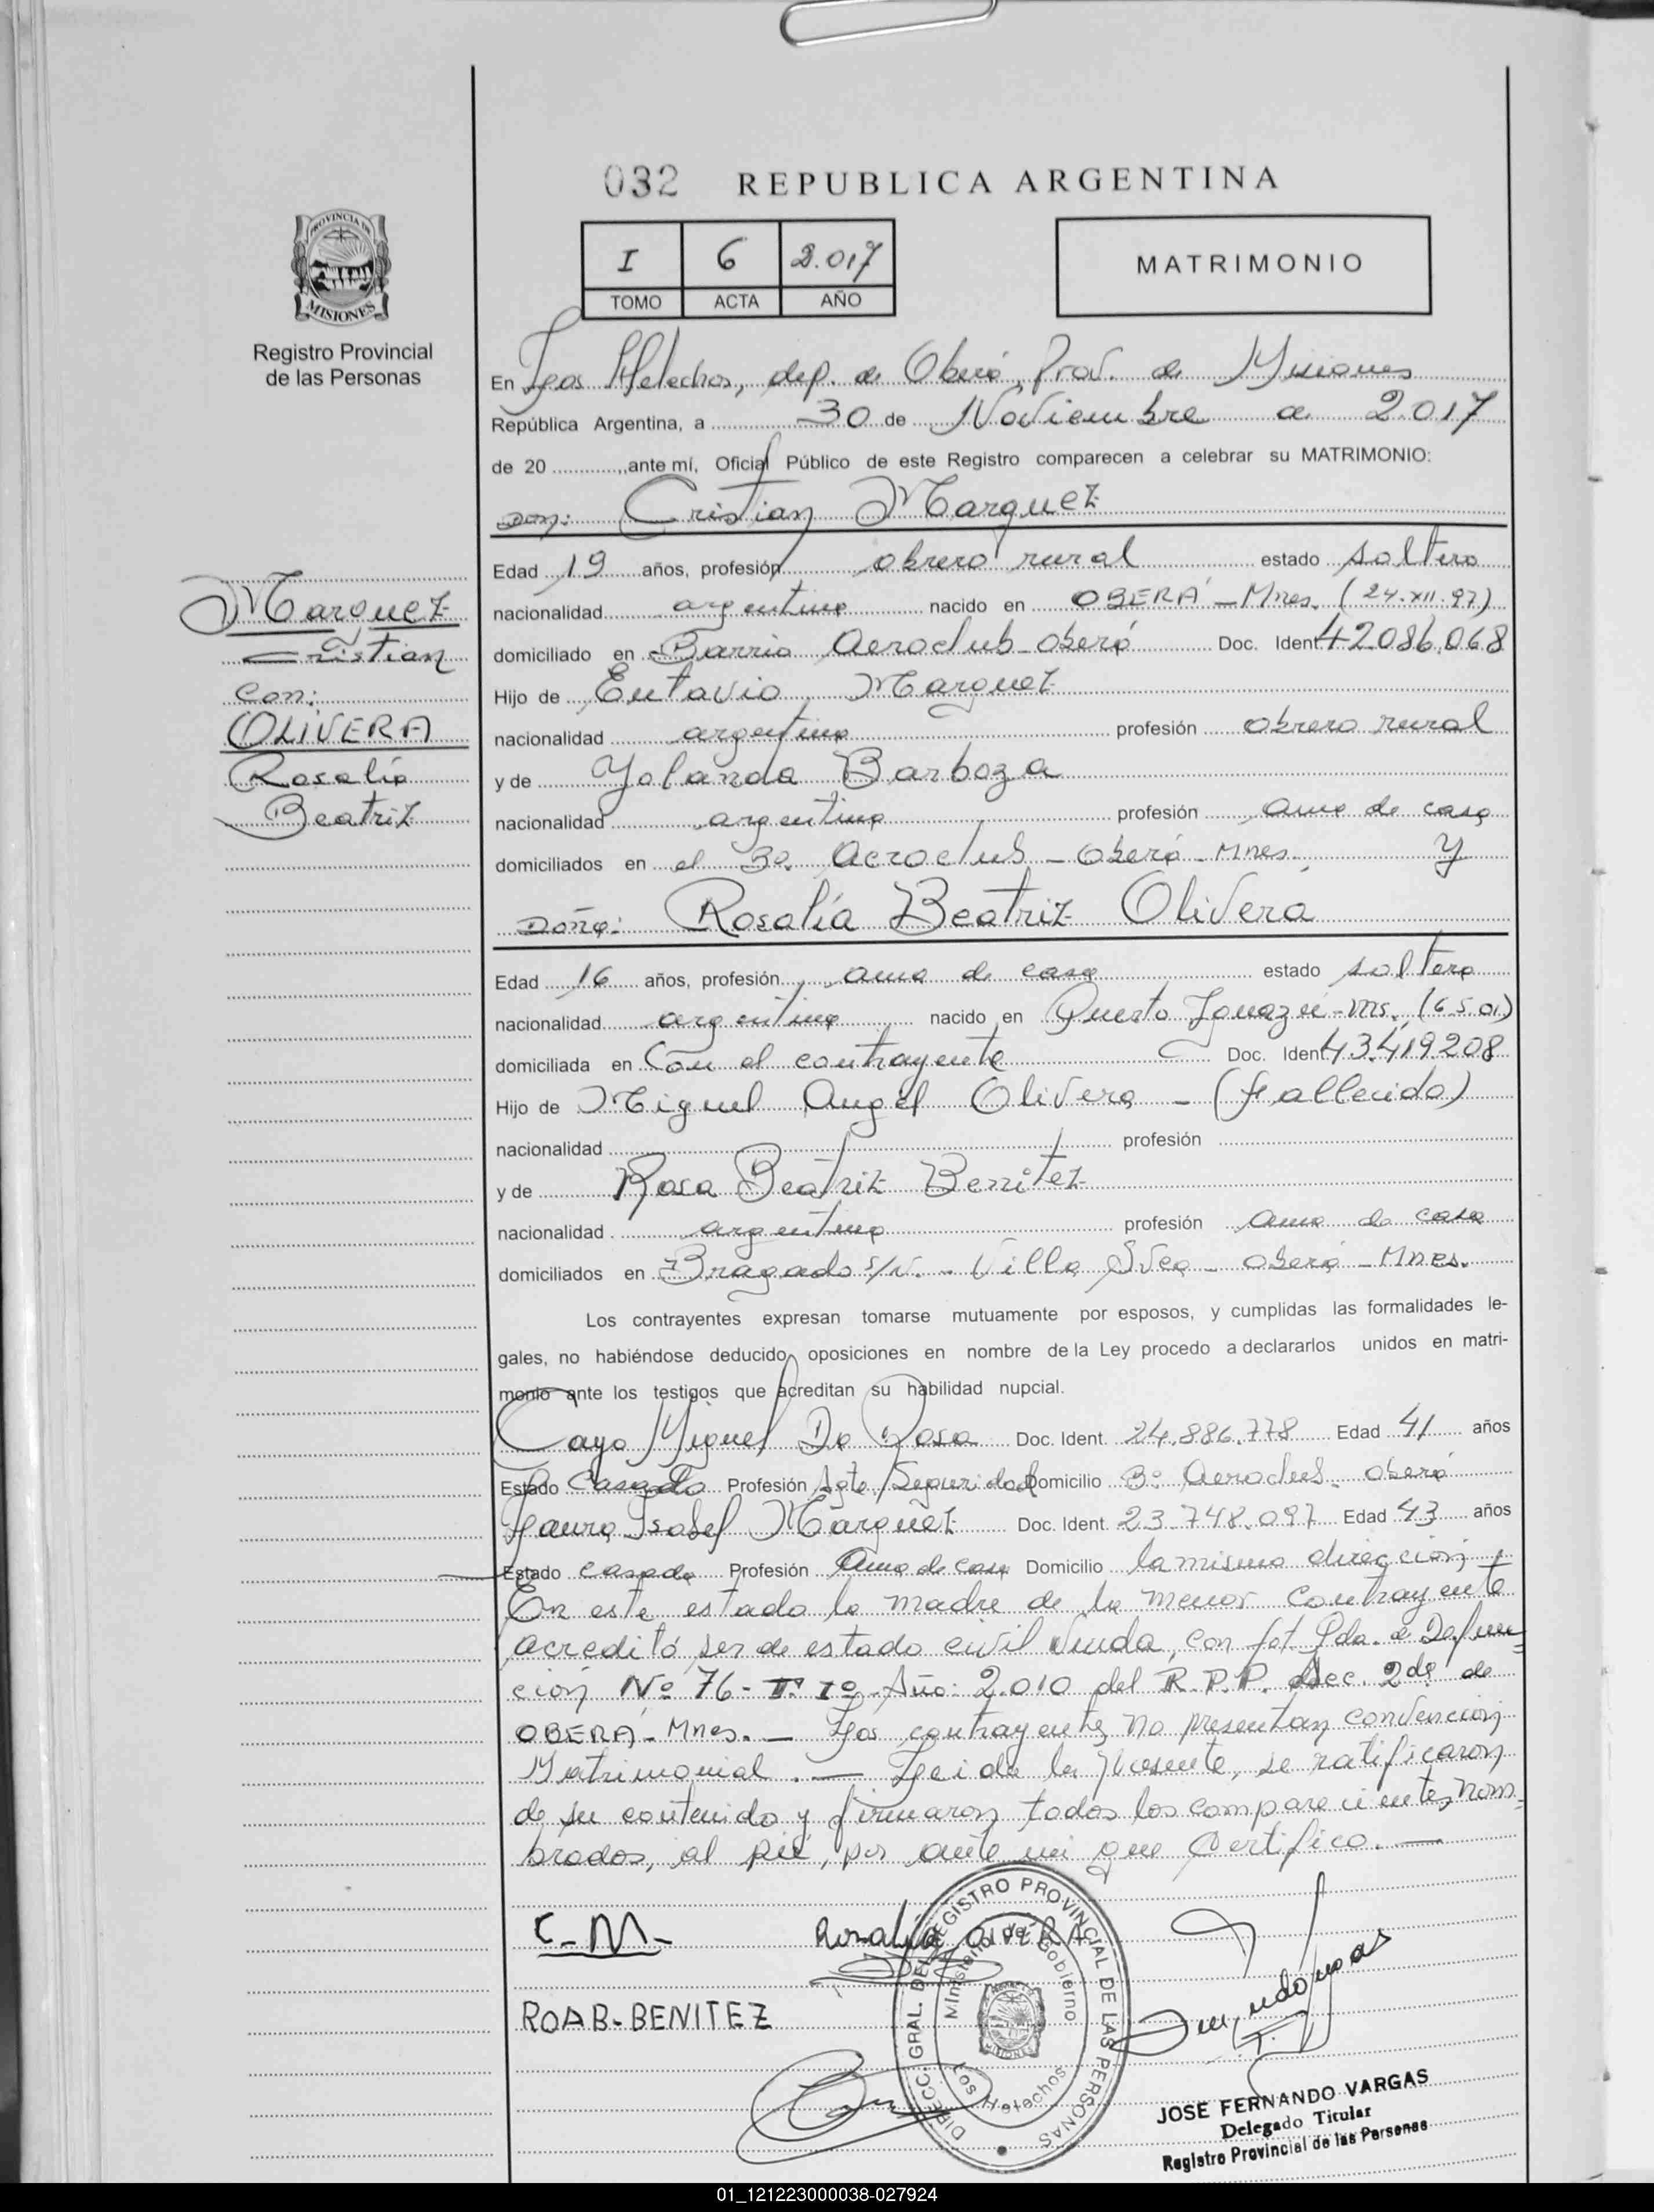 032 REPUBLICA ARGENTINA
PROVINCIA DE
MISIONES
Registro Provincial
de las Personas
I 6 2.017
TOMO ACTA AÑO
MATRIMONIO
En Los Helechos, dep. de Oberá, Prov. de Misiones
República Argentina, a 30 de Noviembre de 2.017
de 20 ............,ante mí, Oficial Público de este Registro comparecen a celebrar su MATRIMONIO:
Don: Cristian Marquez
Edad 19 años, profesión obrero rural estado soltero
nacionalidad argentina nacido en OBERÁ - Mnes. (24.XII.97)
domiciliado en Barrio Aeroclub - Oberá Doc. Ident. 42086.068
Hijo de Eutavio Marquez
nacionalidad argentina profesión obrero rural
y de Yolanda Barboza
nacionalidad argentina profesión ama de casa
domiciliados en el Bº. Aeroclub - Oberá - Mnes. y
Doña: Rosalía Beatriz Olivera
Edad 16 años, profesión ama de casa estado soltera
nacionalidad argentina nacido en Puerto Iguazú - Ms. (6.5.01)
domiciliada en Con el contrayente Doc. Ident. 43.419208
Hijo de Miguel Angel Olivera - (fallecido)
nacionalidad profesión
y de Rosa Beatriz Benitez
nacionalidad argentina profesión ama de casa
domiciliados en Bragado s/n. - Villa Svea - Oberá - Mnes.
Marquez
Cristian
Con:
OLIVERA
Rosalía
Beatriz
Los contrayentes expresan tomarse mutuamente por esposos, y cumplidas las formalidades le-
gales, no habiéndose deducido oposiciones en nombre de la Ley procedo a declararlos unidos en matri-
monio ante los testigos que acreditan su habilidad nupcial.
Cayo Miguel Da Rosa Doc. Ident. 24.886.778 Edad 41 años
Estado Casado Profesión Agte/Seguridad Domicilio Bº Aeroclub - Oberá
Laura Isabel Marquez Doc. Ident. 23.748.097 Edad 43 años
Estado casada Profesión Ama de casa Domicilio la misma dirección
En este estado la madre de la menor contrayente
acreditó ser de estado civil viuda, con fot. Pda. de Defun-
ción Nº 76 - Tº Iº - Año: 2.010 del R.P.P. Sec. 2da de
OBERÁ - Mnes. — Los contrayentes no presentan convención
Matrimonial. — Leida la presente, se ratificaron
de su contenido y firmaron todos los comparecientes nom-
brados, al pié, por ante mi que certifico. —
C-M-
Rosalía OLIVERA
ROAB-BENITEZ
DIRECC. GRAL. DEL REGISTRO PROVINCIAL DE LAS PERSONAS
Ministerio de Gobierno
Los Helechos
JOSE FERNANDO VARGAS
Delegado Titular
Registro Provincial de las Personas
01_121223000038-027924